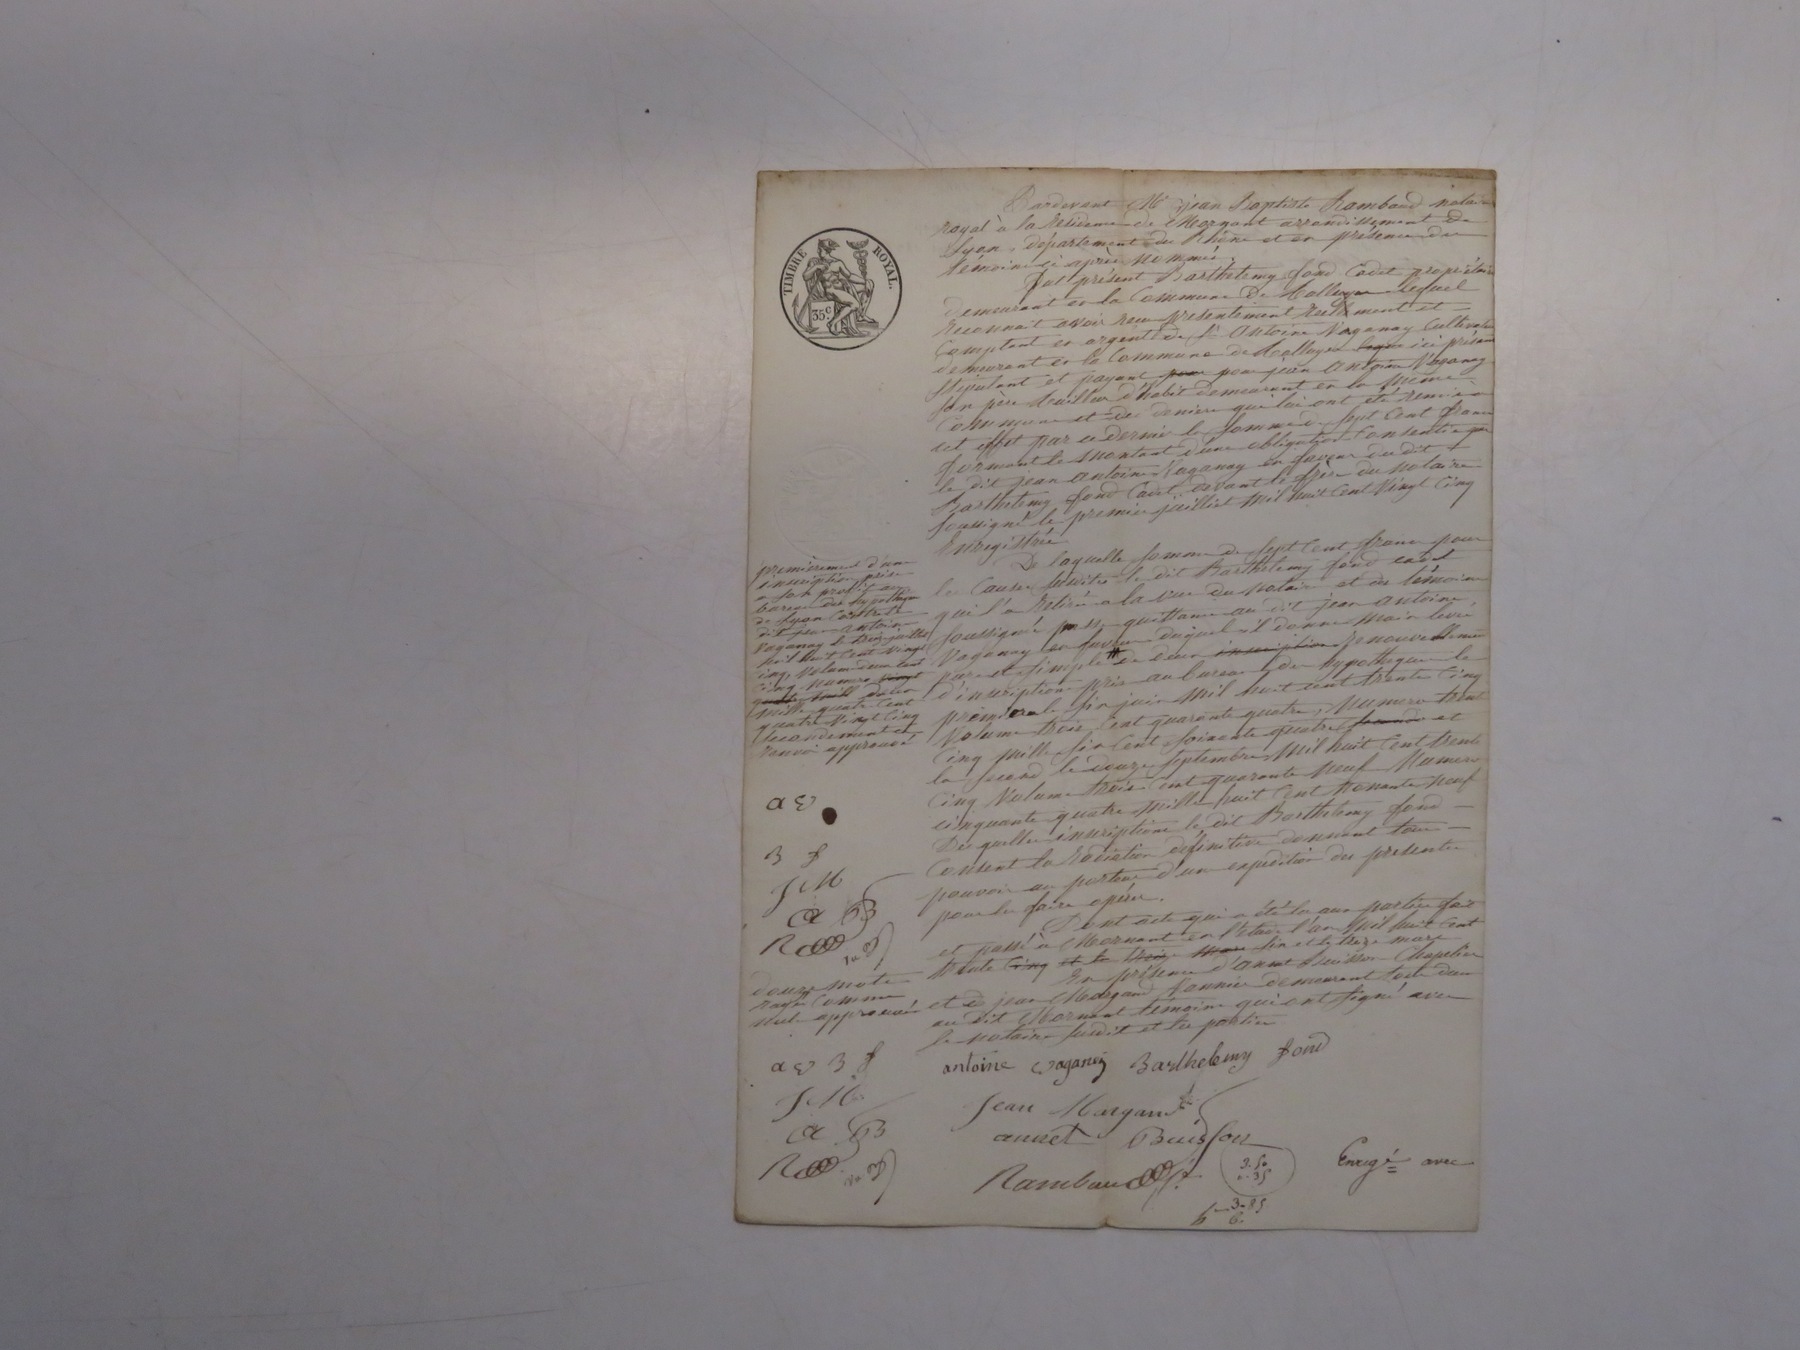 TIMBRE ROYAL.
35c
Pardevant Me jean Baptiste Rambaud notaire
royal à la Résidence de Mornant arrondissement de
Lyon, département du Rhône et en présence des
témoins ci après nommés.
fut présent Barthelemy fond Cadet propriétaire
demeurant en la Commune de lequel
reconnait avoir reçu présentement réellement et
Comptant en argent de Sr Antoine Vaganay Cultivateur
demeurant en la Commune de ici présent
stipulant et payant pour pour jean antoine Vaganay
son père tailleur d'habit demeurant en la même
Commune et des deniers qui lui ont été remis a
cet effet par ce dernier la somme de sept Cent francs
formant le montant d'une obligation Consentie par
le dit jean antoine Vaganay en faveur du dit
Barthelemy fond Cadet devant le frère du notaire
soussigné le premier juillet mil huit Cent Vingt Cinq
Enregistrée
De laquelle somme de sept Cent francs pour
les Causes susdites le dit Barthelemy fond cadet
qui l'a retirée a la vue du notaire et des témoins
soussignés passe quittance au dit jean antoine
Vaganay en faveur duquel il donne main levée
pure et simple de deux inscription renouvellement
d'inscription pris au bureau des hypothèques le
premier le six juin mil huit cent trente Cinq
Volume trois Cent quarante quatre, Numero trente
Cinq mille six Cent soixante quatre et
le second le douze septembre mil huit Cent trente
Cinq Volume trois cent quarante neuf Numero
cinquante quatre mille huit Cent nonante neuf
Desquelles inscriptions le dit Barthelemy fond
Consent la Radiation définitive donnant tous
pouvoirs au porteur d'une expédition des présentes
pour les faire opérer.
Dont acte qui a été lu aux parties fait
et passé à Mornant en l'etude l'an mil huit Cent
trente Cinq et le trois mars six et le treize mars
En présence d'annet Buisson Chapelier
et de jean Margand demeurant tous deux
au dit Mornant témoins qui ont signé avec
le notaire susdit et les parties
premièrement d'une
inscription prise
a son profit au
bureau des hypothèques
de Lyon Contre le
dit jean antoine
Vaganay le juillet
mil huit Cent Vingt
cinq, Volume deux Cent
cinq numero vingt
quatre mille
mille quatre Cent
quatre Vingt Cinq
secondement et
renvoi approuvé
a v
B f
J M
a B
R
douze mots
rayés Comme
nuls approuvés
a v B f
J M
a B
R
antoine vaganey Barthelemy fond
Jean Margand
annet Buisson
Rambaud
3.50
0.35
3.85
6.
Enregé avec